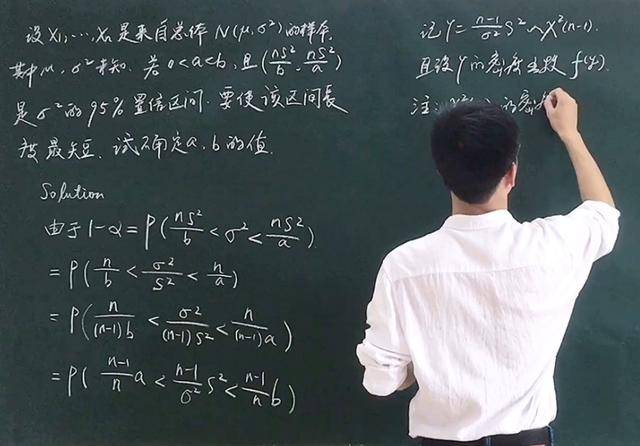 设X₁,…,Xₙ是来自总体 N(μ,σ²)的样本,
其中μ, σ²未知. 若0<a<b, 且(nS²/b, nS²/a)
是σ²的95%置信区间. 要使该区间长
度最短. 试确定a、b的值.
Solution
由于1-α=P(nS²/b < σ² < nS²/a)
=P(n/b < σ²/S² < n/a)
=P(n/((n-1)b) < σ²/((n-1)S²) < n/((n-1)a))
=P((n-1)/n a < (n-1)/σ² S² < (n-1)/n b)
记Y=(n-1)/σ² S² ~ χ²(n-1).
且设Y的密度函数 f(y).
注: 的密